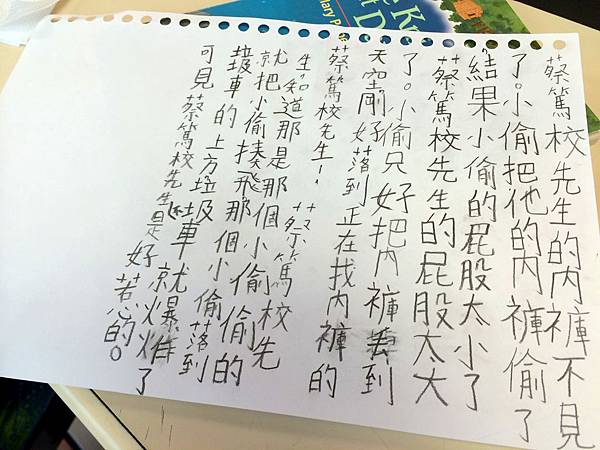 蔡篤校先生的內褲不見
了。小偷把他的內褲偷了
結果小偷的屁股太小了
蔡篤校先生的屁股太大
了。小偷只好把內褲丟到
天空剛好落到正在找內褲的
蔡篤校先生!蔡篤校先
生知道那是那個小偷偷的
就把小偷揍飛那個小偷落到
垃圾車的上方垃圾車就爆炸了
可見蔡篤校先生是好惹的。